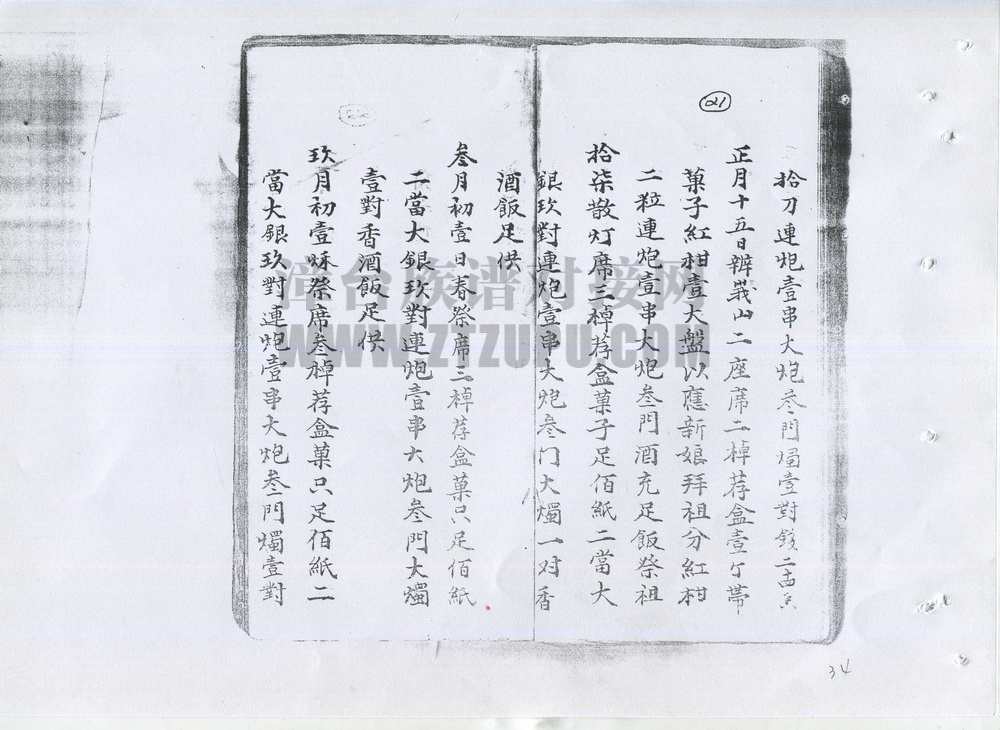 21
拾刀連炮壹串大炮叁門燭壹對錢二
正月十五日辨峩山二座席二棹荐盒壹个带
菓子紅柑壹大盤以應新娘拜祖分紅柑
二粒連炮壹串大炮叁門酒充足飯祭祖
拾柒散灯席三棹荐盒菓子足佰紙二當大
銀玖對連炮壹串大炮叁门大燭一对香
酒飯足供
22
叁月初壹日春祭席三棹荐盒菓只足佰紙
二當大銀玖對連炮壹串大炮叁門大燭
壹對香酒飯足供
玖月初壹秌祭席叁棹荐盒菓只足佰紙二
當大銀玖對連炮壹串大炮叁門燭壹對
34
漳台族谱对接网
WWW.ZTZUPU.COM